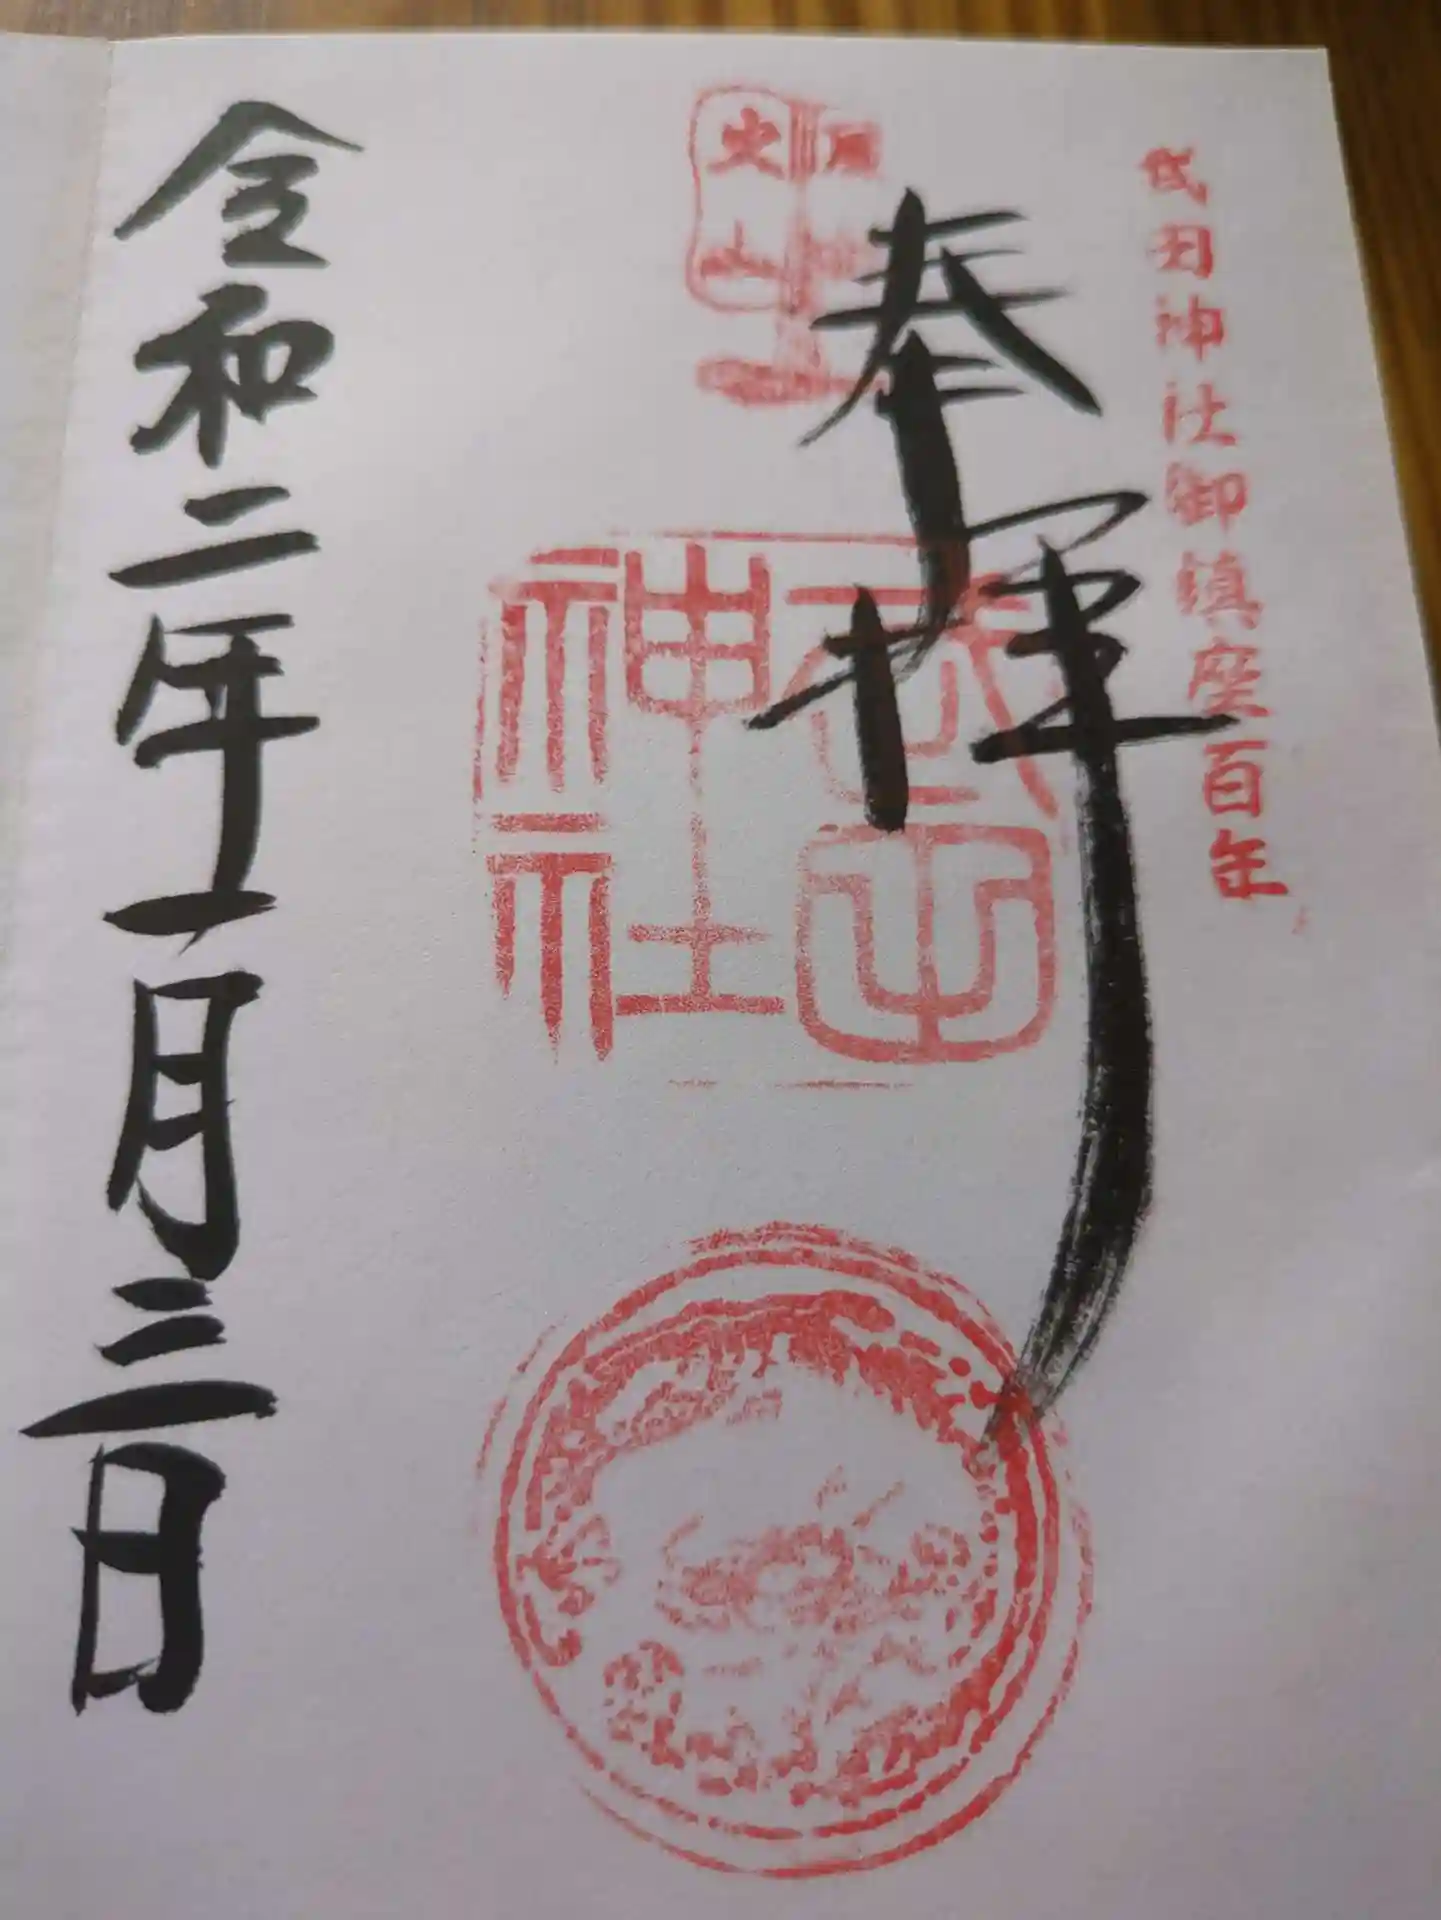 武田神社御鎮座百年
奉拝
風林
火山
武田
神社
令和二年一月三日